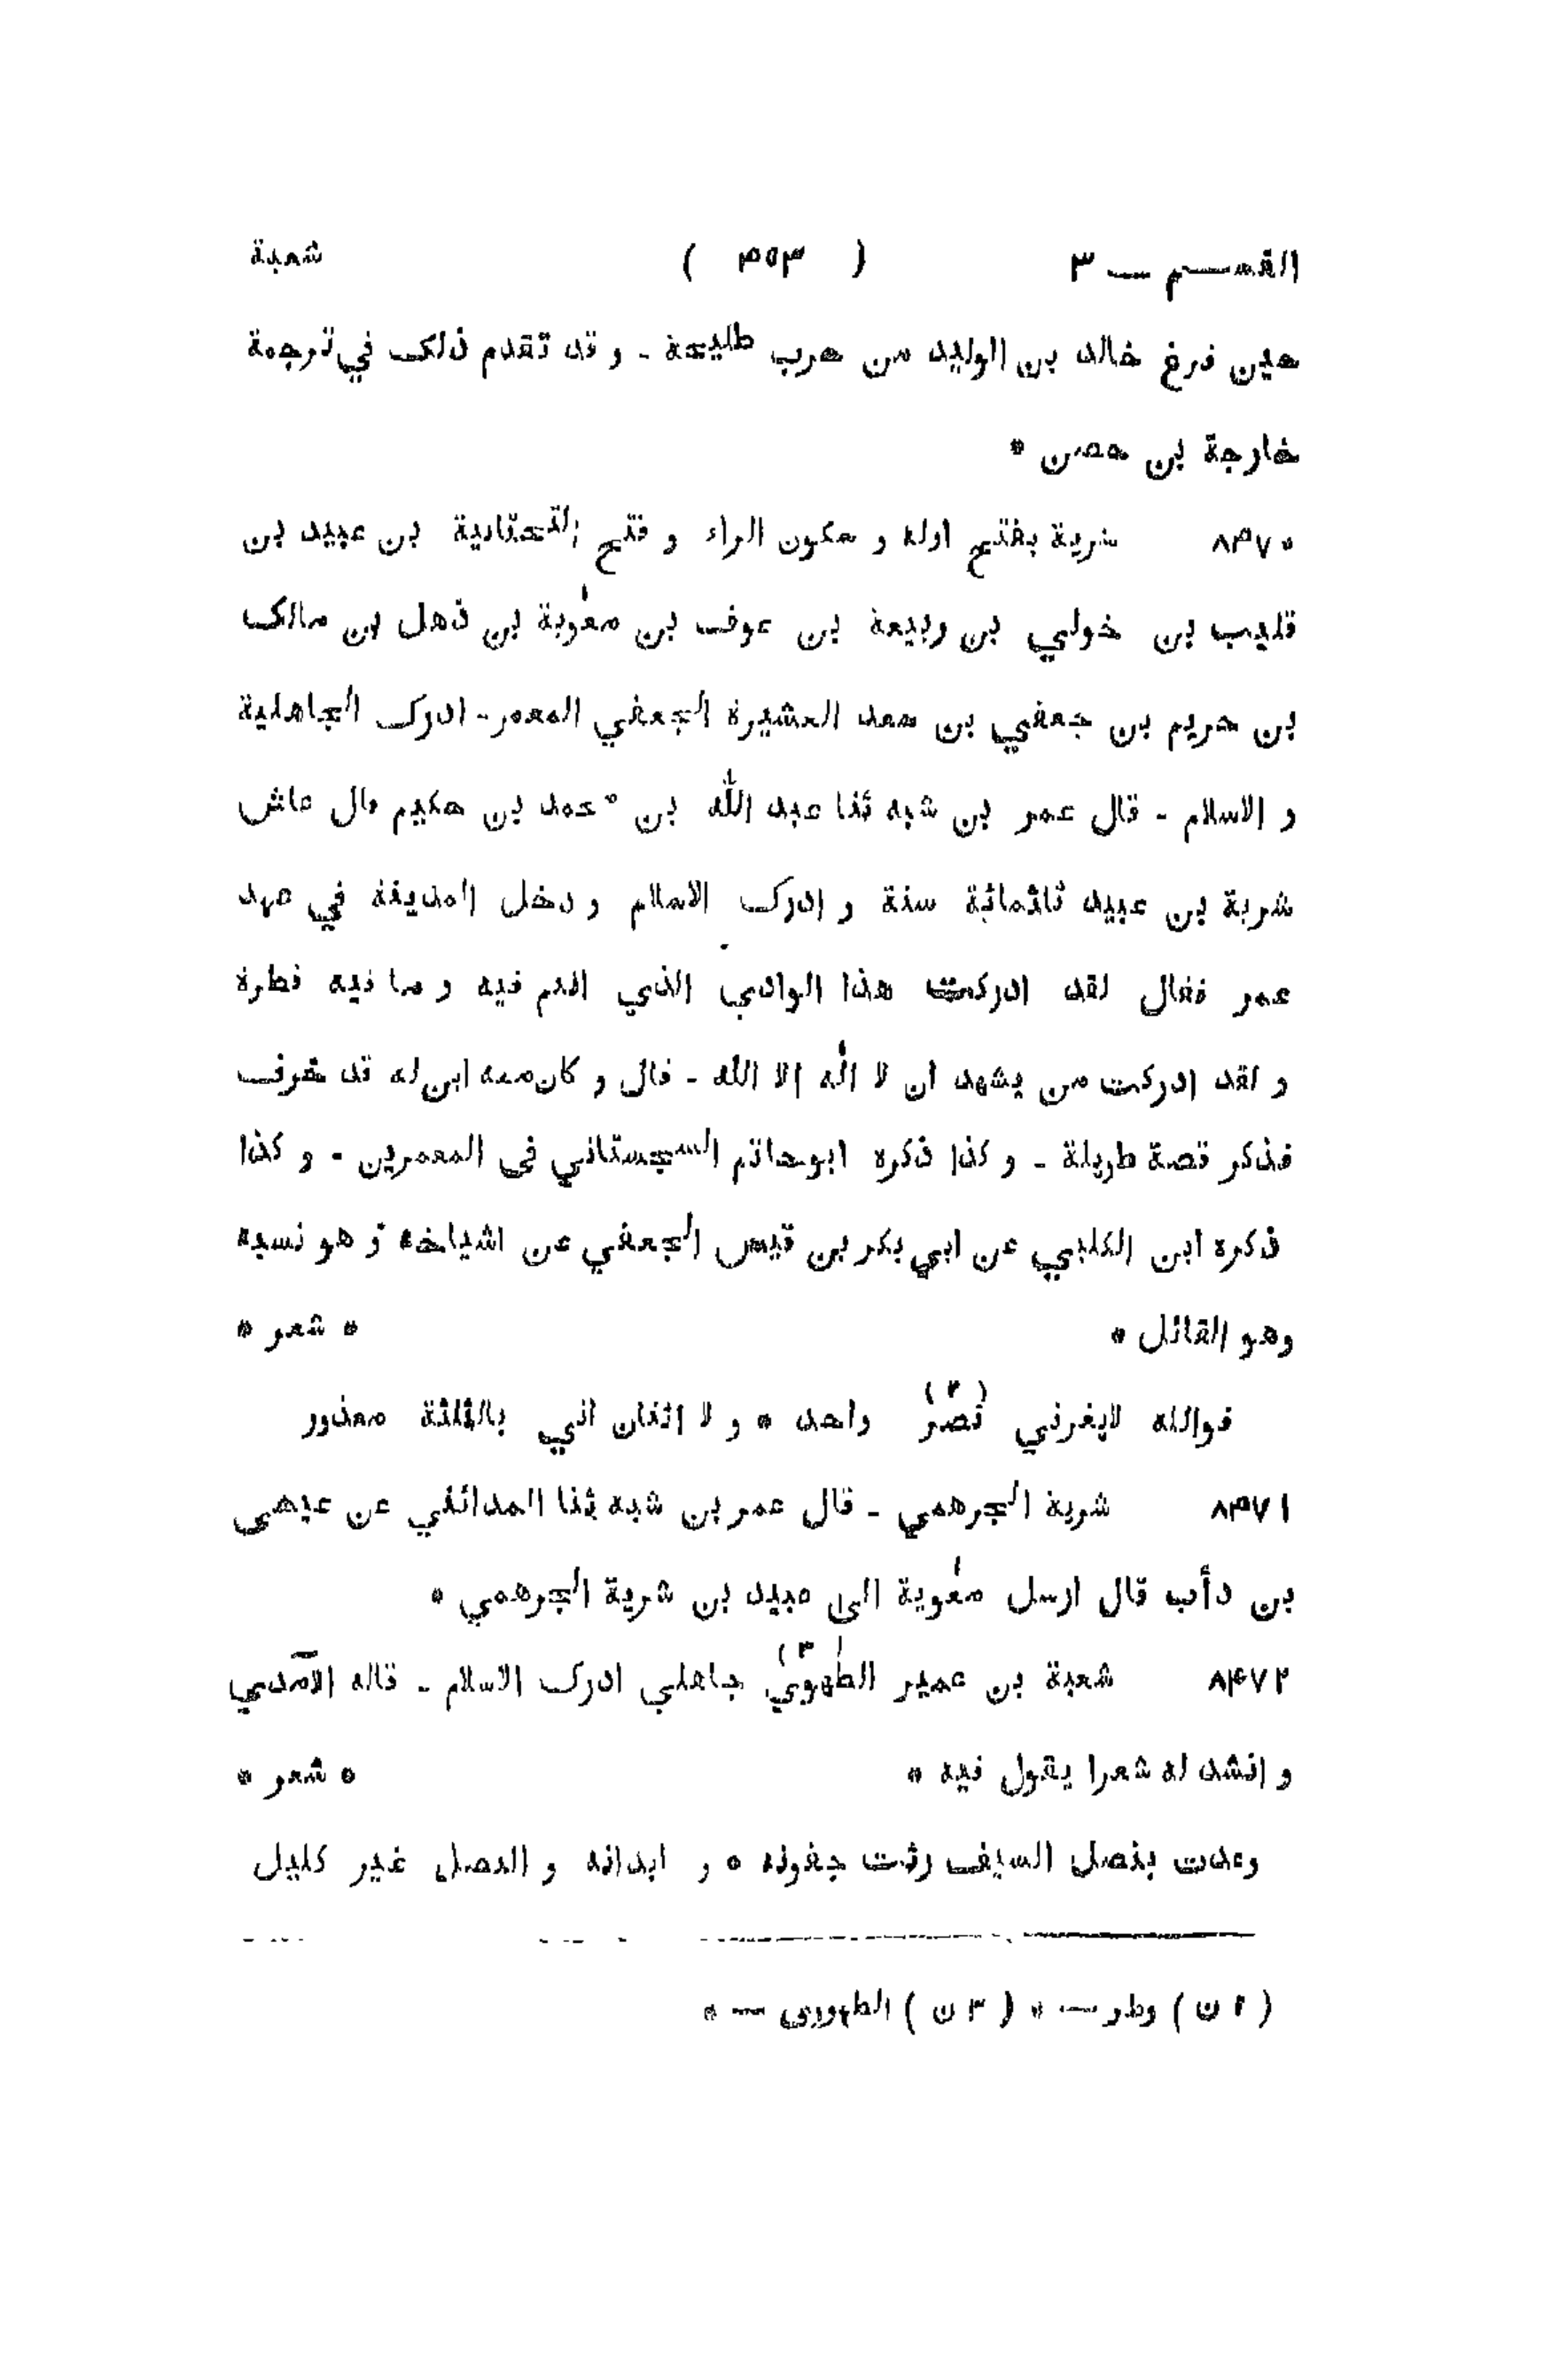 القسم — ٣ ( ٤٥٣ ) شعبة
حين فرغ خالد بن الوليد من حرب طليحة - و قد تقدم ذلك في ترجمة
خارجة بن حصن *
٨٤٧٠ شرية بفتح اوله و سكون الراء و فتح التحتانية بن عبيد بن
قليب بن خولي بن ربيعة بن عوف بن معٰوية بن ذهل بن مالك
بن حريم بن جعفي بن سعد العشيرة الجعفي المعمر - ادرك الجاهلية
و الاسلام - قال عمر بن شبه ثنا عبد اللّٰه بن محمد بن حكيم قال عاش
شرية بن عبيد ثلثمائة سنة و ادرك الاسلام و دخل المدينة في عهد
عمر فقال لقد ادركت هذا الوادي الذي انتم فيه و ما فيه قطرة
و لقد ادركت من يشهد ان لا الٰه الا الله - قال و كان معه ابن له قد خرف
فذكر قصة طويلة - و كذا ذكره ابوحاتم السجستاني فى المعمرين - و كذا
ذكره ابن الكلبي عن ابي بكر بن قيس الجعفي عن اشياخه و هو نسبه
وهو القائل * * شعر *
فوالله لايغرني نصرٌ (٢) واحد * و لا اثنان اني بالثلثة معذور
٨٤٧١ شرية الجرهمي - قال عمر بن شبه ثنا المدائني عن عيسى
بن دأب قال ارسل معٰوية الى عبيد بن شرية الجرهمي *
٨٤٧٢ شعبة بن عمير الطهوي (٣) جاهلي ادرك الاسلام - قاله الآمدي
و انشد له شعرا يقول فيه * * شعر *
وعدت بنصل السيف رثت جفونه * و ابدانه و النصل غير كليل
( ٢ ن ) وطر — * ( ٣ ن ) الطهورى — *